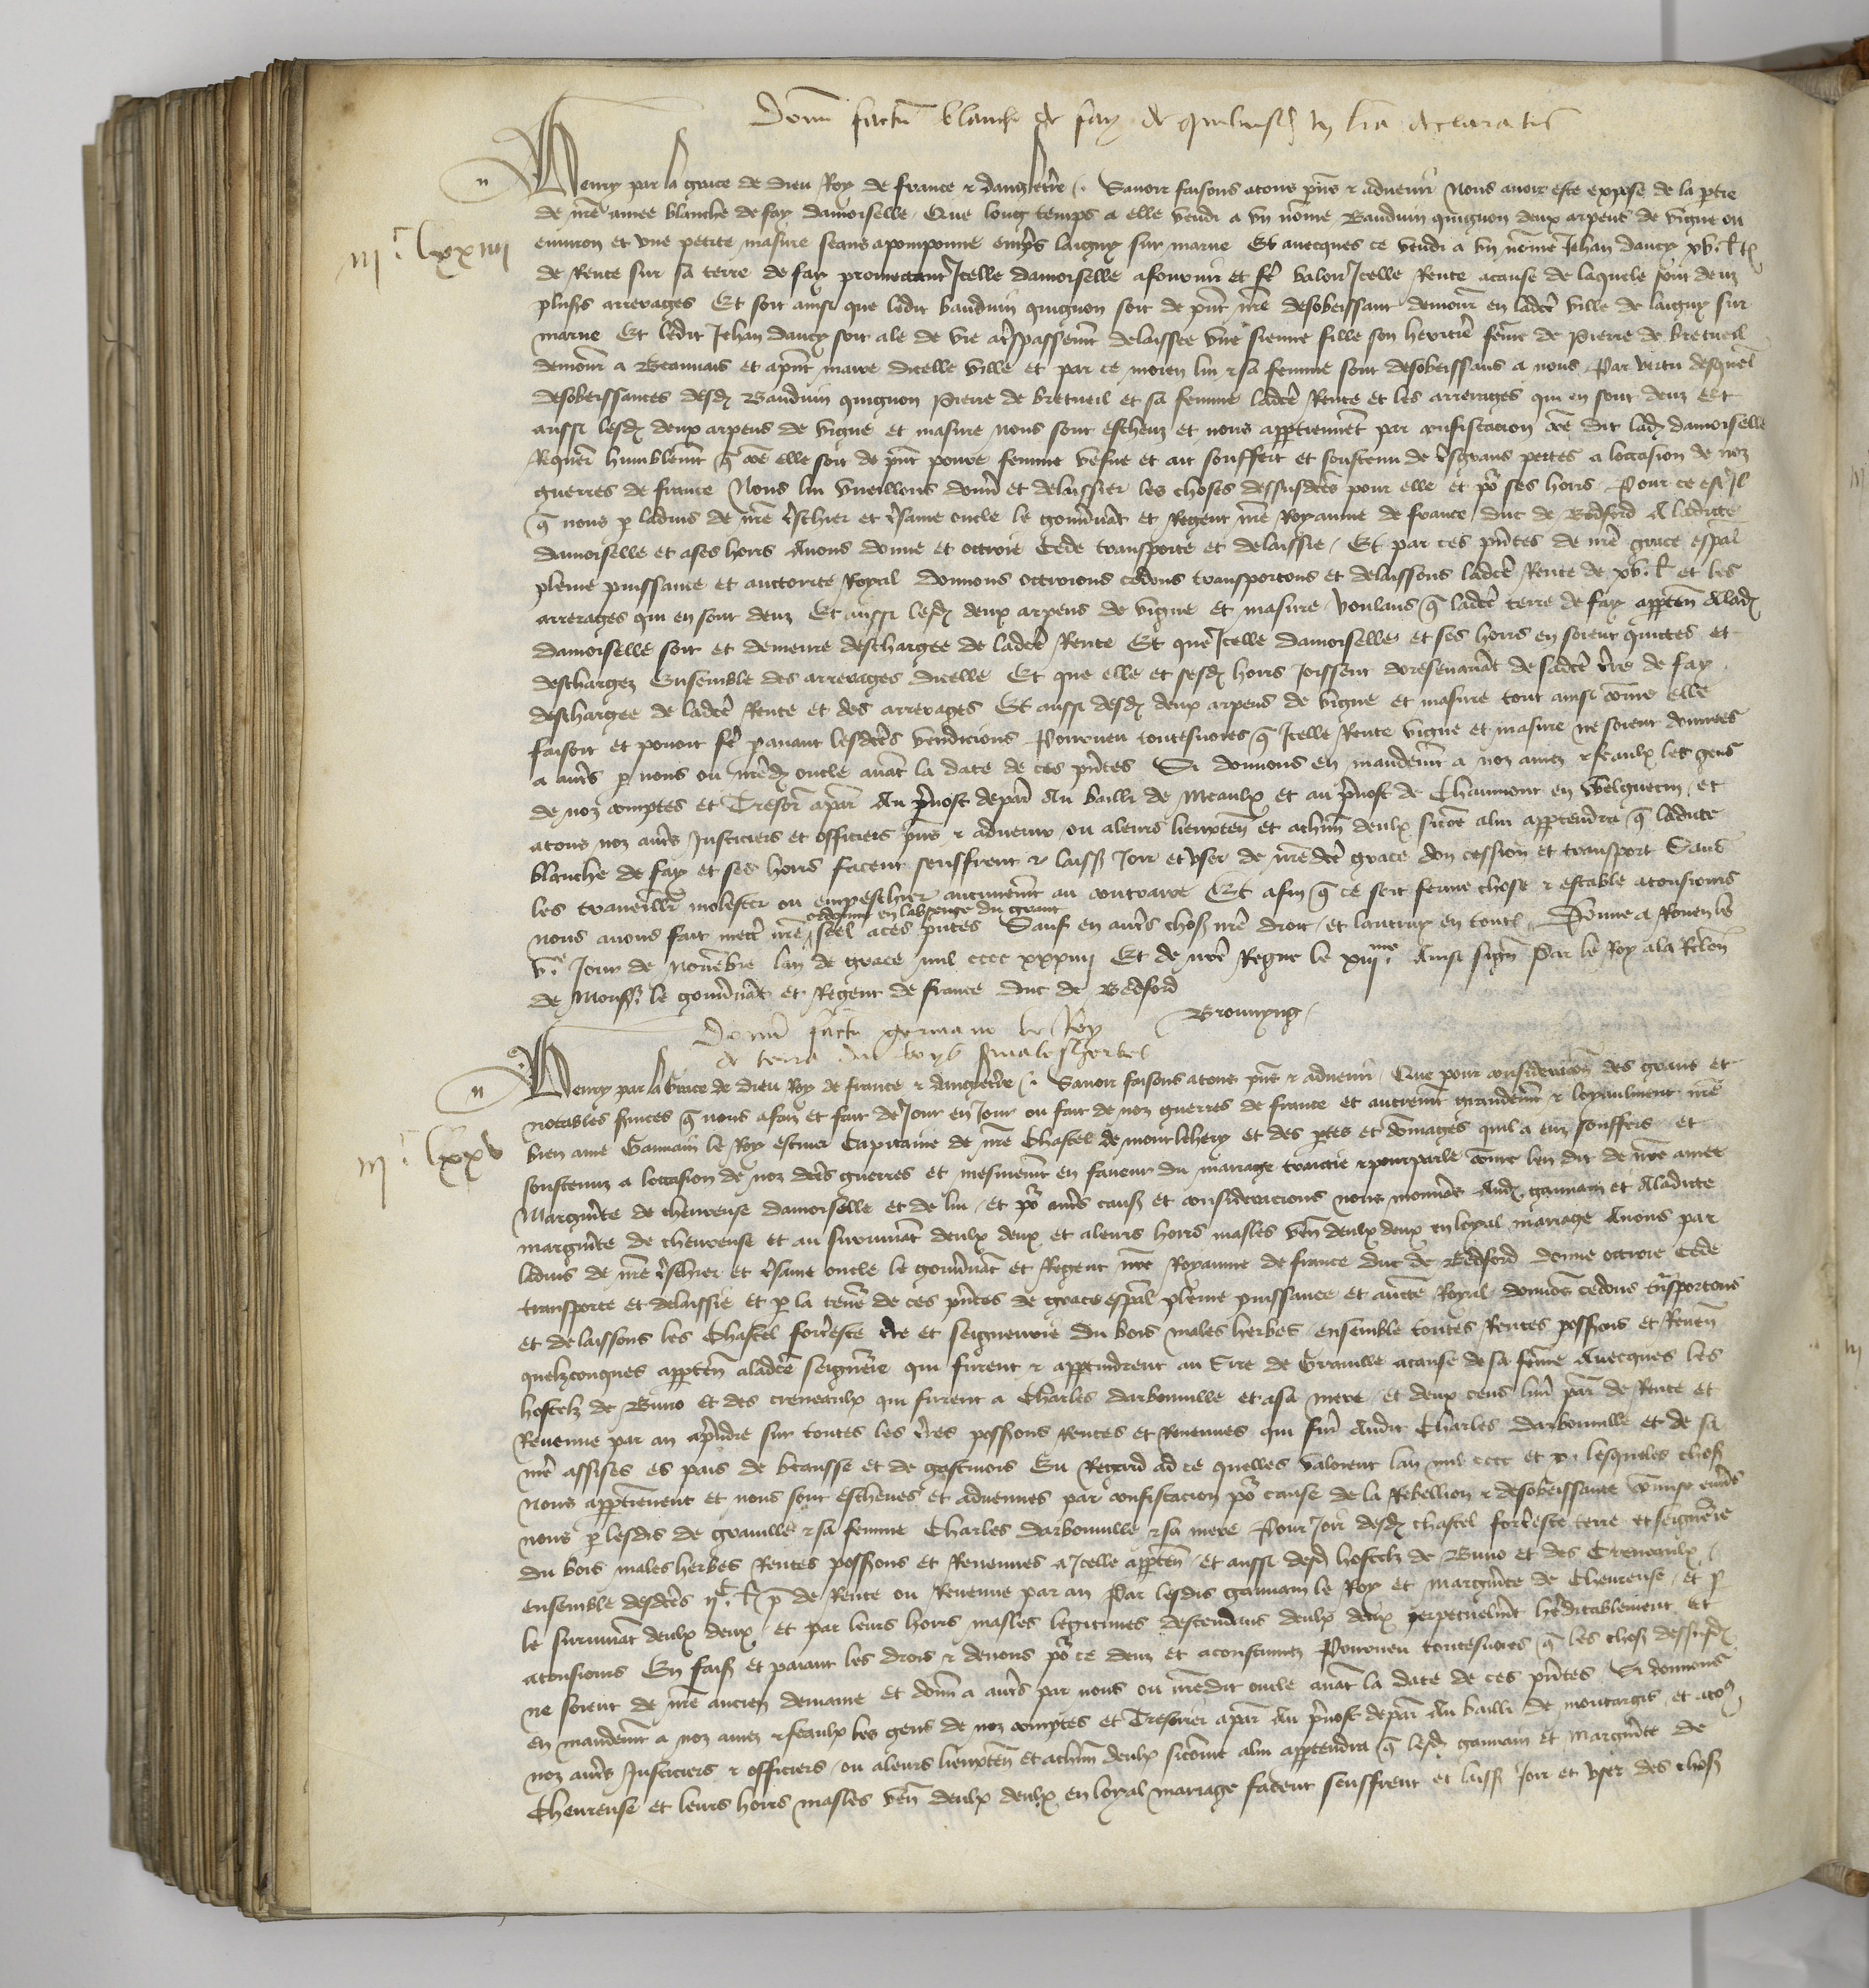 Donum factum blanche de fay de quibusdam in littera declaratis
n
Henry par la grace de dieu Roy de france et dangleterre Savoir faisons a tous presens et advenir Nous avoir este expose de la partie
de nostre amee blanche de fay damoiselle Que long temps a elle vendi a un nomme Bauduin quignon deux arpens de vigne ou
iiic lxxiiii
environ et une petite masure seans a pomponne empres laigny sur marne Et avecques ce vendi a un nomme Jehan dancy xvi l. t.
de Rente sur sa terre de fay promectant Icelle damoiselle a fournir et fere valoir Icelle Rente a cause de laquele sont deuz
plusieurs arrerages Et soit ainsi que ledit bauduin quignon soit de present nostre desobeissant demourant en ladicte ville de laigny sur
marne Et ledit Jehan dancy soit ale de vie a trespassement delaissee une sienne fille son heritiere femme de Pierre de bretueil
demourant a Beauvais et a present maire dicelle ville et par ce moien lui et sa femme sont desobeissans a nous Par vertu desqueles
desobeissances desdiz Bauduin quignon Pierre de bretueil et sa femme ladicte Rente et les arrerages qui en sont deuz Et
aussi lesdiz deux arpens de vigne et masure nous sont escheuz et nous appartiennent par confiscacion comme dit ladicte damoiselle
Requerant humblement que comme elle soit de present povre femme vesve et ait souffert et soustenu de tresgrans pertes a loccasion de noz
guerres de france Nous lui vueillons donner et delaissier les choses dessusdictes pour elle et pour ses hoirs Pour ce est Il
que nous par ladvis de nostre treschier et tresame oncle le gouvernant et Regent nostre Royaume de france duc de Bedford A ladicte
damoiselle et a ses hoirs Avons donne et octroie Cede transporte et delaissie Et par ces presentes de nostre grace especial
pleine puissance et auctorite Royal donnons octroions cedons transportons et delaissons ladicte Rente de xvi l. et les
arrerages qui en sont deuz Et aussi lesdiz deux arpens de vigne et masure voulans que ladicte terre de fay appartenant A ladicte
damoiselle soit et demeure deschargee de ladicte Rente Et que Icelle damoiselle et ses hoirs en soient quictes et
deschargez Ensemble des arrerages dicelle Et que elle et sesdiz hoirs Joissent doresenavant de sadicte terre de fay
deschargee de ladicte Rente et des arrerages Et aussi desdiz deux arpens de vigne et masure tout ainsi comme elle
faisoit et povoit fere paravant lesdictes vendicions Pourveu toutesvoies que Icelle Rente vigne et masure ne soient donnees
a autres par nous ou nostredit oncle avant la date de ces presentes Si donnons en mandement a noz amez et feaulx les gens
de noz comptes et Tresorier a paris Au prevost de paris Au bailli de Meaulx et au prevost de Chaumont en Welguecin et
a tous noz autres Justiciers et officiers presens et advenir ou a leurs lieuxtenans et a chascun deulx si comme a lui appartendra que ladicte
blanche de fay et ses hoirs facent seuffrent et laissent Joir et user de nostre dicte grace don cession et transport Sans
les traveillier molester ou empeschier aucunement au contraire Et afin que ce soit ferme chose et estable a tousiours
ordonne en labsence du grant
nous avons fait mectre nostre seel a ces presentes Sauf en autres choses nostre droit et lautruy en toutes Donne a Rouen le
vie Jour de Novembre lan de grace mil cccc xxxiiii Et de nostre Regne le xiiime Ainsi signe Par le Roy a la Relacion
de Monseigneur le gouvernant et Regent de france duc de Bedford
Brounyng
Donum factum germano le Roy
de terra du boys sinalesherbes
n
Henry par la Grace de dieu Roy de france et dangleterre Savoir faisons a tous presens et advenir Que pour consideracion des grans et
notables services que nous a faiz et fait de Jour en Jour ou fait de noz guerres de france et autrement grandement et loyaulment nostre
iiic lxxv
bien ame Gaunain le Roy escuier Capitaine de nostre Chastel de montlehery et des pertes et dommages quil a euz souffers et
soustenuz a loccasion de noz dictes guerres et mesmement en faveur du mariage traictie et pourparle comme len dit de nostre amee
Marguerite de chevreuse damoiselle et de lui Et pour autres causes et consideracions nous mouvans Audit gaunain et A ladicte
marguerite de chevreuse et au survivant deulx deux et a leurs hoirs masles venans deulx deux en loyal mariage Avons par
ladvis de nostre treschier et tresame oncle le gouvernant et Regent nostre Royaume de france duc de Bedford donne octroie Cede
transporte et delaissie et par la teneur de ces presentes de grace especial pleine puissance et auctorite Royal donnons cedons transportons
et delaissons les Chastel forteresse terre et seigneurie du bois males herbes ensemble toutes Rentes possessions et Revenues
quelzconques appartenans a ladicte seigneurie qui furent et appartindrent au Sire de Graville a cause de sa femme Avecques les
hostelz de Buno et des creneaulx qui furent a Charles darbouville et a sa mere et deux cens livres parisis de Rente et
Revenue par an a prendre sur toutes les terres possessions Rentes et Revenues qui furent Audit Charles darbouville et de sa
mere assises es pais de beausse et de gastinois Eu Regard ad ce quelles valoient lan mil cccc et x lesqueles choses
nous appartiennent et nous sont escheues et advenues par confiscacion pour cause de la Rebellion et desobeissance commise envers
nous par lesdis de graville et sa femme Charles darbouville et sa mere Pour Joir desdiz chastel forteresse terre et seigneurie
du bois males herbes Rentes possessions et Revenues a Icelle appartenans et aussi desdiz hostelz de Buno et des Creneaulx
ensemble desdictes iic l. p. de Rente ou Revenue par an Par lesdis gaunain le Roy et marguerite de Chevreuse et par
le survivant deulx deux et par leurs hoirs masles legitimes descendans deulx deux perpetuelment hereditablement et
a tousiours En faisant et paiant les drois et devoirs pour ce deuz et acoustumez Pourveu toutesvoies que les choses dessusdictes
ne soient de nostre ancien demaine et donnees a autres par nous ou nostredit oncle avant la date de ces presentes Si donnons
en mandement a noz amez et feaulx les gens de noz comptes et Tresorier a paris Au prevost de paris Au bailli de montargis et a tous
noz autres Justiciers et officiers ou a leurs lieuxtenans et a chascun deulx si comme a lui appartendra que lesdiz gaunain et Marguerite de
Chevreuse et leurs hoirs masles venans deulx deulx en loyal mariage facent seuffrent et laissent Joir et user des choses